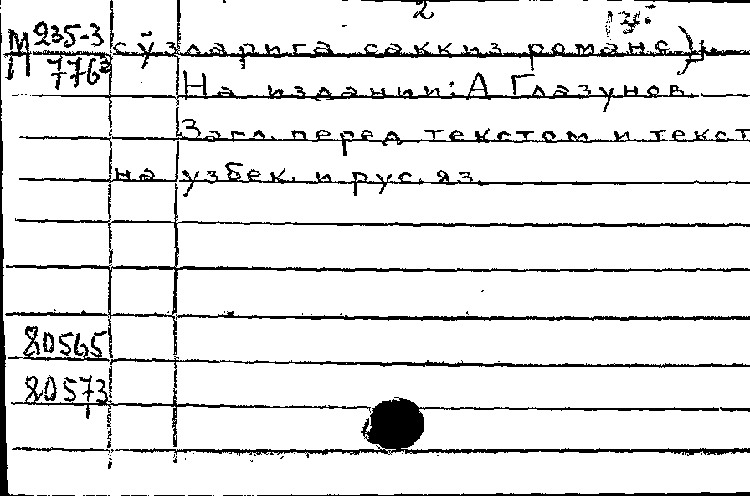 2
М 235-3 сўзларига саккиз романс).
776³ На издании: А Глазунов.
Загл. перед текстом и текст
на узбек. и рус. яз.
80565
80573